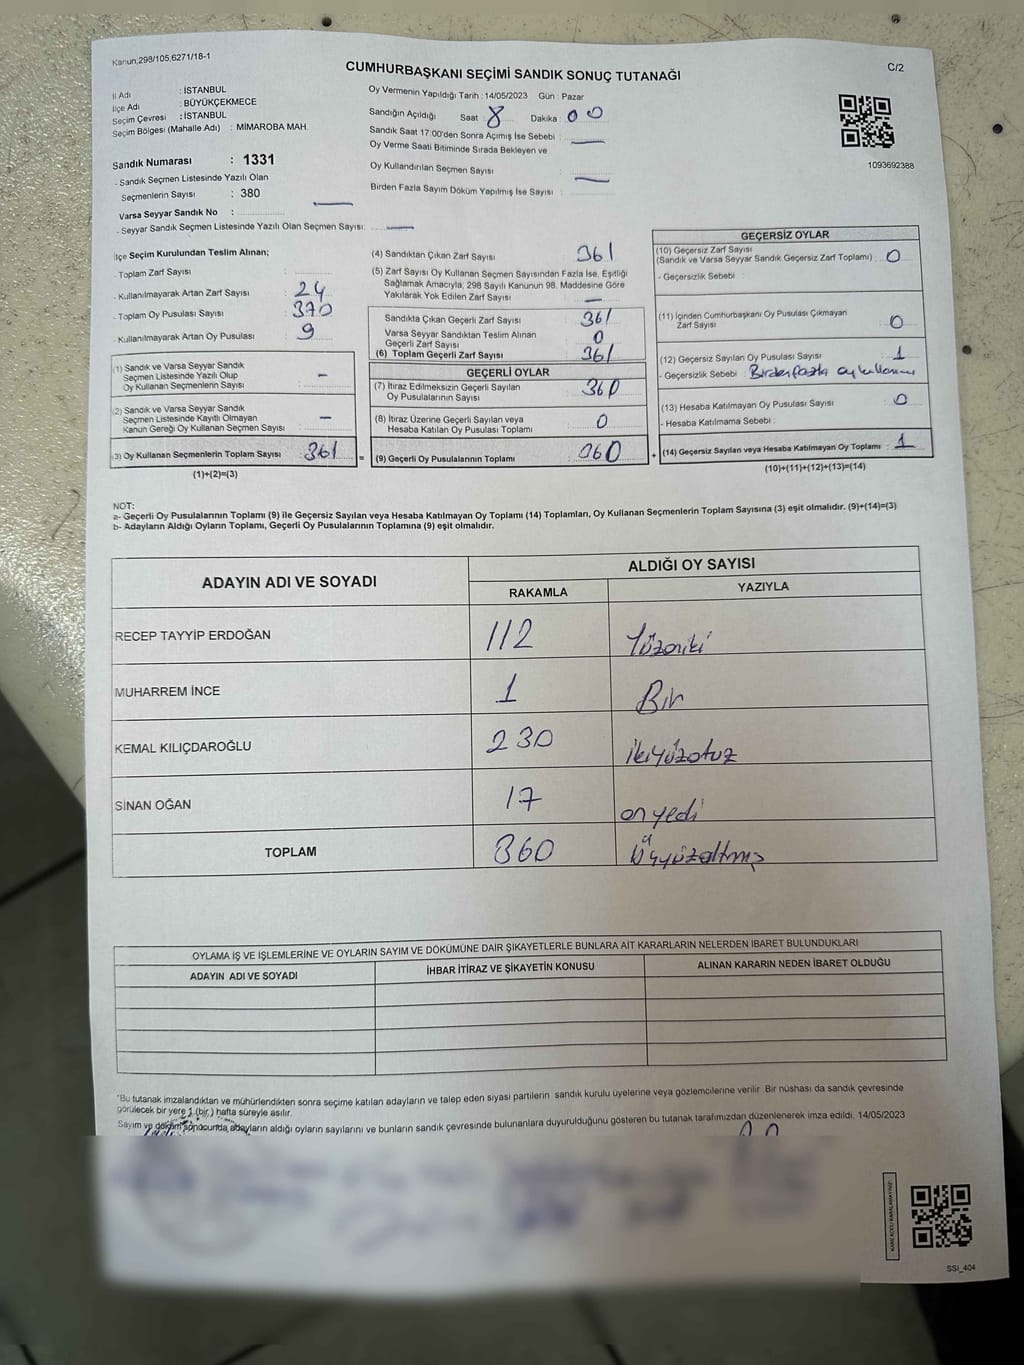 Kanun,298/105,6271/18-1
CUMHURBAŞKANI SEÇİMİ SANDIK SONUÇ TUTANAĞI
C/2
İl Adı : İSTANBUL
İlçe Adı : BÜYÜKÇEKMECE
Seçim Çevresi : İSTANBUL
Seçim Bölgesi (Mahalle Adı) : MİMAROBA MAH.
Sandık Numarası : 1331
- Sandık Seçmen Listesinde Yazılı Olan
Seçmenlerin Sayısı : 380
Varsa Seyyar Sandık No : —
- Seyyar Sandık Seçmen Listesinde Yazılı Olan Seçmen Sayısı: —
Oy Vermenin Yapıldığı Tarih : 14/05/2023 Gün : Pazar
Sandığın Açıldığı Saat 8 Dakika 00
Sandık Saat 17:00'den Sonra Açımış İse Sebebi : —
Oy Verme Saati Bitiminde Sırada Bekleyen ve
Oy Kullandırılan Seçmen Sayısı : —
Birden Fazla Sayım Döküm Yapılmış İse Sayısı :
1093692388
İlçe Seçim Kurulundan Teslim Alınan;
- Toplam Zarf Sayısı :
- Kullanılmayarak Artan Zarf Sayısı : 24
- Toplam Oy Pusulası Sayısı : 370
- Kullanılmayarak Artan Oy Pusulası : 9
(1) Sandık ve Varsa Seyyar Sandık
Seçmen Listesinde Yazılı Olup
Oy Kullanan Seçmenlerin Sayısı : —
(2) Sandık ve Varsa Seyyar Sandık
Seçmen Listesinde Kayıtlı Olmayan
Kanun Gereği Oy Kullanan Seçmen Sayısı : —
(3) Oy Kullanan Seçmenlerin Toplam Sayısı : 361 =
(1)+(2)=(3)
(4) Sandıktan Çıkan Zarf Sayısı : 361
(5) Zarf Sayısı Oy Kullanan Seçmen Sayısından Fazla İse, Eşitliği
Sağlamak Amacıyla, 298 Sayılı Kanunun 98. Maddesine Göre
Yakılarak Yok Edilen Zarf Sayısı : —
Sandıkta Çıkan Geçerli Zarf Sayısı : 361
Varsa Seyyar Sandıktan Teslim Alınan
Geçerli Zarf Sayısı : 0
(6) Toplam Geçerli Zarf Sayısı : 361
GEÇERLİ OYLAR
(7) İtiraz Edilmeksizin Geçerli Sayılan
Oy Pusulalarının Sayısı : 360
(8) İtiraz Üzerine Geçerli Sayılan veya
Hesaba Katılan Oy Pusulası Toplamı : 0
(9) Geçerli Oy Pusulalarının Toplamı : 360 +
GEÇERSİZ OYLAR
(10) Geçersiz Zarf Sayısı
(Sandık ve Varsa Seyyar Sandık Geçersiz Zarf Toplamı) : 0
- Geçersizlik Sebebi :
(11) İçinden Cumhurbaşkanı Oy Pusulası Çıkmayan
Zarf Sayısı : 0
(12) Geçersiz Sayılan Oy Pusulası Sayısı : 1
- Geçersizlik Sebebi : Birden fazla oy kullanımı
(13) Hesaba Katılmayan Oy Pusulası Sayısı : 0
- Hesaba Katılmama Sebebi :
(14) Geçersiz Sayılan veya Hesaba Katılmayan Oy Toplamı : 1
(10)+(11)+(12)+(13)=(14)
NOT:
a- Geçerli Oy Pusulalarının Toplamı (9) ile Geçersiz Sayılan veya Hesaba Katılmayan Oy Toplamı (14) Toplamları, Oy Kullanan Seçmenlerin Toplam Sayısına (3) eşit olmalıdır. (9)+(14)=(3)
b- Adayların Aldığı Oyların Toplamı, Geçerli Oy Pusulalarının Toplamına (9) eşit olmalıdır.
ADAYIN ADI VE SOYADI
ALDIĞI OY SAYISI
RAKAMLA YAZIYLA
RECEP TAYYİP ERDOĞAN 112 Yüzoniki
MUHARREM İNCE 1 Bir
KEMAL KILIÇDAROĞLU 230 ikiyüzotuz
SİNAN OĞAN 17 onyedi
TOPLAM 360 üçyüzaltmış
OYLAMA İŞ VE İŞLEMLERİNE VE OYLARIN SAYIM VE DÖKÜMÜNE DAİR ŞİKAYETLERLE BUNLARA AİT KARARLARIN NELERDEN İBARET BULUNDUKLARI
ADAYIN ADI VE SOYADI İHBAR İTİRAZ VE ŞİKAYETİN KONUSU ALINAN KARARIN NEDEN İBARET OLDUĞU
*Bu tutanak imzalandıktan ve mühürlendikten sonra seçime katılan adayların ve talep eden siyasi partilerin sandık kurulu üyelerine veya gözlemcilerine verilir. Bir nüshası da sandık çevresinde
görülecek bir yere 1 (bir) hafta süreyle asılır.
Sayım ve döküm sonucunda adayların aldığı oyların sayılarını ve bunların sandık çevresinde bulunanlara duyurulduğunu gösteren bu tutanak tarafımızdan düzenlenerek imza edildi. 14/05/2023
KARE KODU KARALAMAYINIZ!
SSI_404